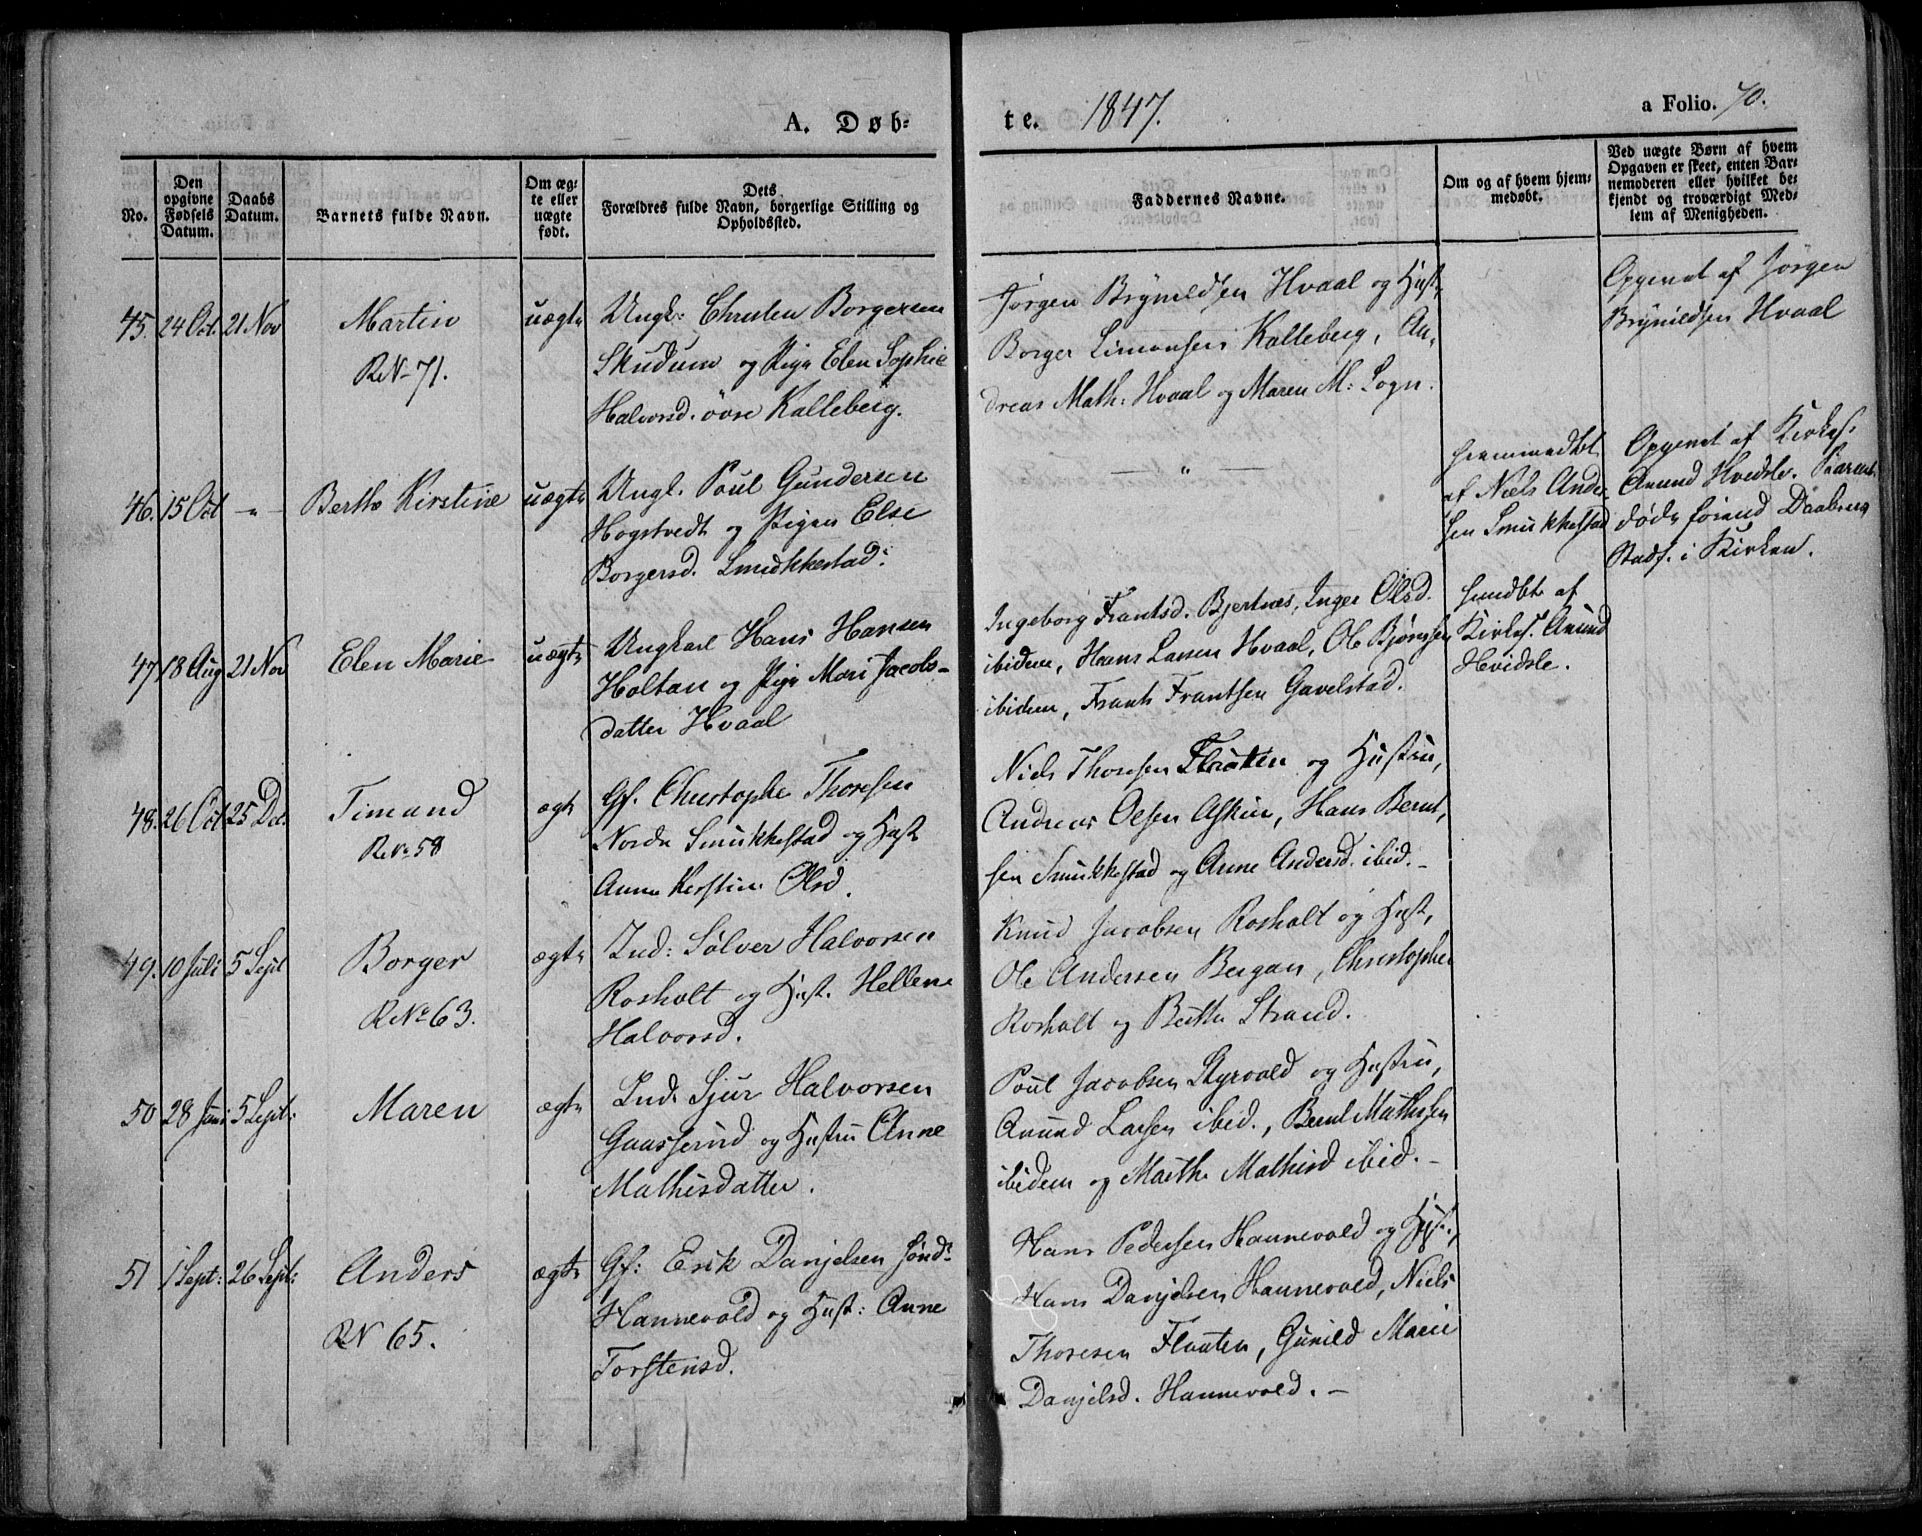 A. Døb-
te. 1847.
a Folio. 70.
No.
Den opgivne Fødsels Datum.
Daabs Datum.
Barnets fulde Navn.
Om ægte eller uægte født.
Dets Forældres fulde Navn, borgerlige Stilling og Opholdssted.
Faddernes Navne.
Om og af hvem hjemmedøbt.
Ved uægte Børn af hvem Opgaven er skeet, enten Barnemoderen eller hvilket bekjendt og troværdigt Medlem af Menigheden.
45. 24 Oct. 21 Nov
Martin
RN 71.
uægte
Ungk: Christen Borgersen
Skudum og Pige Elen Sophie
Halvorsd. övre Kalleberg.
Jørgen Brynildsen Hvaal og Hust,
Borger Simonsen Kalleberg, An-
dreas Math: Hvaal og Maren M: Sogn.
Opgivet af Jørgen
Brynildsen Hvaal
46. 15 Oct - " -
Berthe Kirstine
uægte
Ungk. Poul Gundersen
Hogstvedt og Pigen Else
Borgersd. Smukkestad.
— " —
hjemmedbt
af Niels Ander-
sen Smukkestad
Opgivet af Kirkes.
Anund Hvidsle. Barnet
døde förend Daabens
Stadf. i Kirken.
47 18 Aug 21 Nov
Elen Marie
uægte
Ungkarl Hans Hansen
Holtan og Pige Mari Jacobs-
datter Hvaal
Ingeborg Frantsd. Bjertnes, Inger Olsd.
ibidem, Hans Larsen Hvaal, Ole Bjørnsen
ibidem, Frants Frantsen Gavelstad.
hmdbt af
Kirkes. Anund
Hvidsle.
48. 26 Oct 25 Dec.
Timand
RNo 58
ægte
Gf. Christopher Thoresen
Nordre Smukkestad og Hust
Anne Kirstine Olsd.
Niels Thoresen Flaaten og Hustru,
Andreas Olsen Askim, Hans Bernt-
sen Smukkestad og Anne Andersd. ibid. -
49. 10 Juli 5 Sept
Borger
RNo 63.
ægte
Ind: Sølver Halvorsen
Rosholt og Hust. Hellene
Halvorsd.
Knud Jacobsen Rosholt og Hust,
Ole Andersen Bergan, Christopher
Rosholt og Berthe Strand.
50 28 Juni 5 Sept:
Maren
ægte
Ind. Sjur Halvorsen
Gaasserud og Hustru Anne
Mathisdatter.
Poul Jacobsen Styrvold og Hustru,
Anund Larsen ibid., Bernt Mathisen
ibidem og Marthe Mathisd ibid. -
51 1 Sept: 26 Sept:
Anders
RN 65.
ægte
Gf: Erik Danjelsen sönd.
Hannevold og Hust: Anne
Torstensd.
Hans Pedersen Hannevold og Hust.,
Hans Danjelsen Hannevold, Niels
Thoresen Flaaten, Gunild Marie
Danjelsd. Hannevold. -